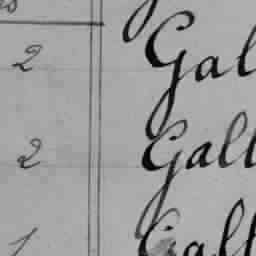 2 Gal
2 Gall
1 Gall